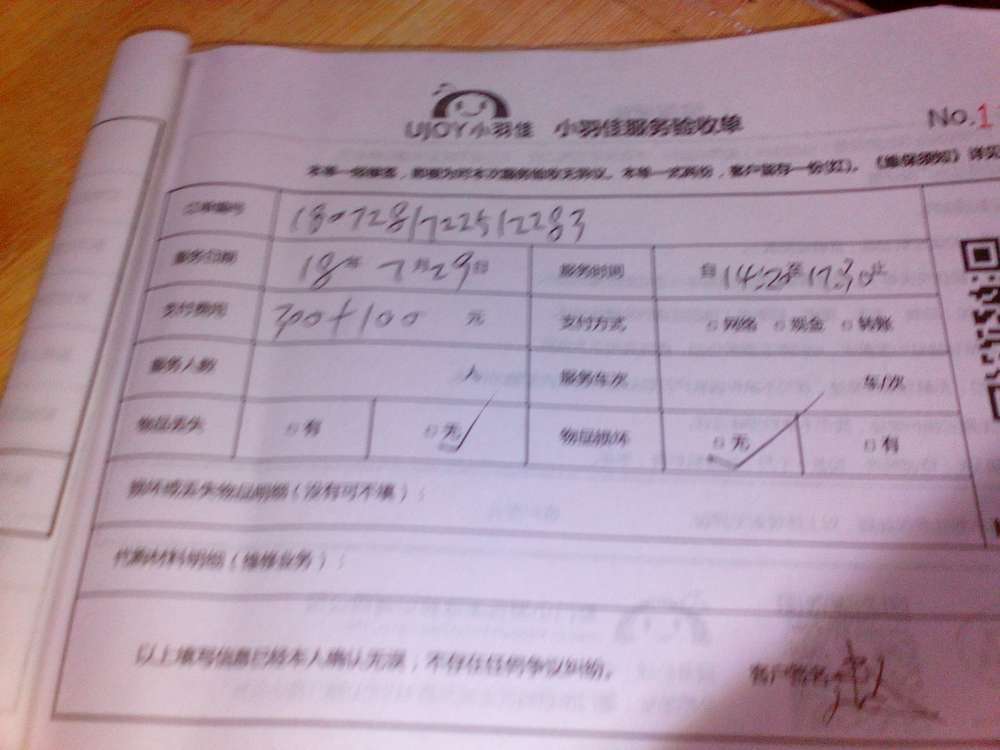 UJOY小羽佳 小羽佳服务验收单
No.1
本单一经签署，即视为对本次服务验收无异议。本单一式两份，客户留存一份(红)。《维保须知》详见
订单编号 1807281722512283
服务日期 18年 7月29日 服务时间 自14:20至17:30止
支付费用 300+100 元 支付方式 网络 现金 转账
服务人数 人 服务车次 车/次
物品丢失 有 无 物品损坏 无 有
损坏或丢失物品明细（没有可不填）：
代购材料明细（维修业务）：
以上填写信息已经本人确认无误，不存在任何争议纠纷。 客户签名：